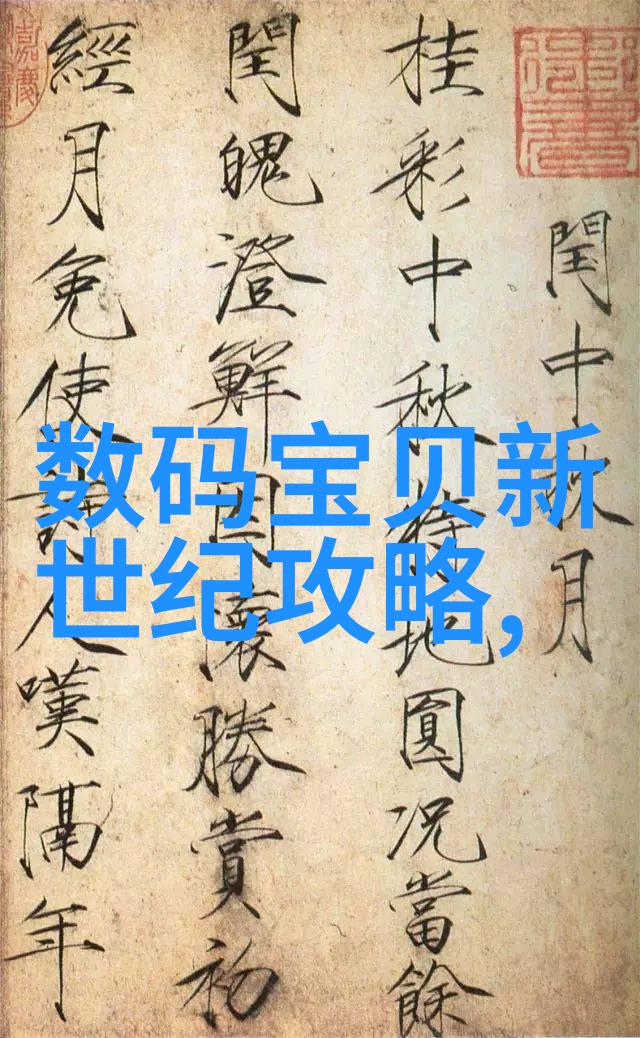 閏中秋月
桂彩中秋特地圓況當餘
閏魄澄鮮因懷勝賞初
經月免使詩人嘆隔年
数码宝贝新
世纪攻略,